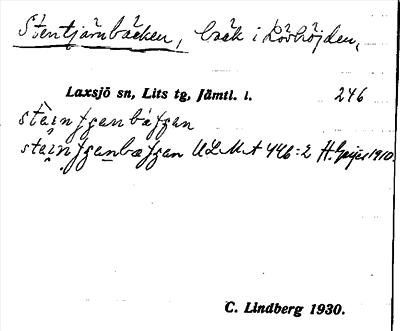 Stentjärnbäcken, bäck i Lövhöjden,
Laxsjö sn, Lits tg, Jämtl. l. 246
U L M A 446:2 H. Geijer 1910.
C. Lindberg 1930.